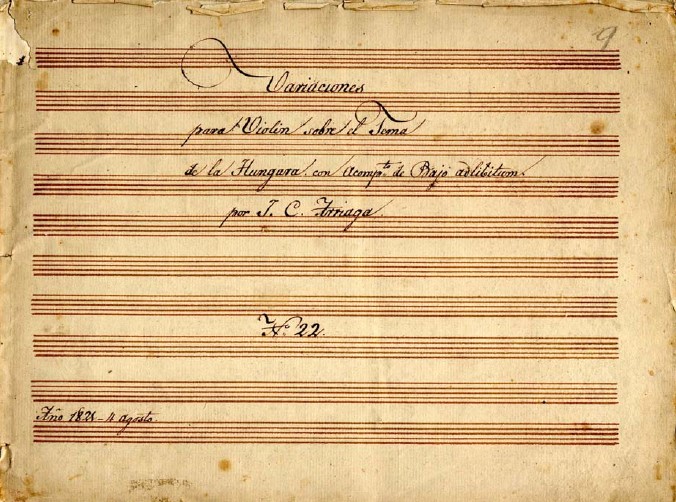 9
Variaciones
para Violin sobre el Tema
de la Hungara con Acomp.to de Bajo adlibitum.
por J. C. Arriaga.
N.º 22.
Año 1821 - 4 agosto.